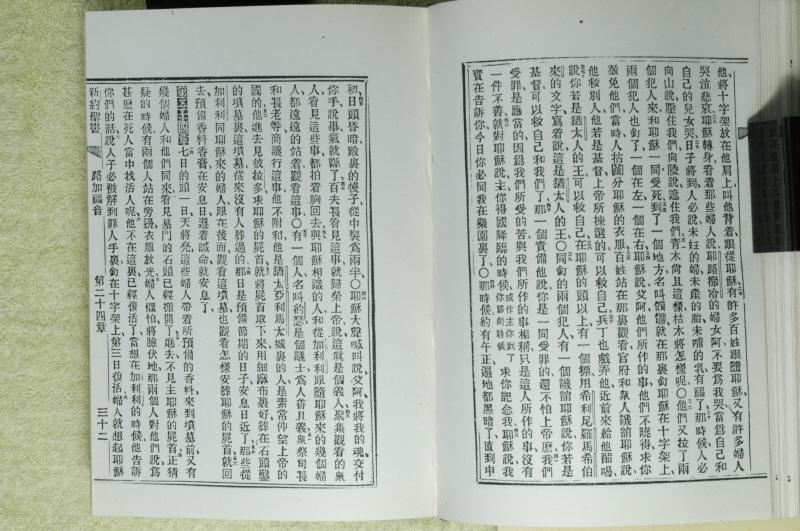 他將十字架放在他肩上叫他背着跟從耶穌有許多百姓跟隨耶穌又有許多婦人
哭泣悲哀耶穌轉身看着那些婦人說耶路撒冷的婦女阿不要爲我哭當爲自己和
自己的兒女哭日子將到人必說未妊的婦未產的胎未哺的乳有福了那時候人必
向山說壓住我們向陵說遮住我們靑木尙且這樣枯木將怎樣呢○他們又拉了兩
個犯人來和耶穌一同受死到了一個地方名叫髑髏就在那裏釘耶穌在十字架上
兩個犯人也釘了一個在左一個在右耶穌說父阿他們所作的事他們不曉得求你
赦免他們當時人拈鬮分耶穌的衣服百姓站在那裏觀看官府和衆人譏誚耶穌說
他救別人他若是基督上帝所揀選的可以救自己兵丁也戲弄他近前來給他醋喝
說你若是猶太人的王可以救自己在耶穌的頭以上有一個標用希利尼羅馬希伯
來的文字寫着說這是猶太人的王○同釘的兩個犯人有一個譏誚耶穌說你若是
基督可以救自己和我們了那一個責備他說你是一同受罪的還不怕上帝麽我們
受罪是應當的因爲我們所受的苦與我們所作的事相稱只是這人所作的事沒有
一件不善就對耶穌說主你得國降臨的時候或作主你到了你的時候求你記念我耶穌說我
實在告訴你今日你必同我在樂園裏了○那時候約有午正遍地都黑暗了直到申
初日頭昏暗殿裏的幔子從中裂爲兩半○耶穌大聲喊叫說父阿我將我的魂交付
你手說畢氣就斷了百夫長看見這事就歸榮上帝說這眞是個義人聚集觀看的衆
人看見這些事都拍着胸回去與耶穌相識的人和從加利利跟隨耶穌來的幾個婦
人都遠遠的站着觀看這事○有一個人名叫約瑟是個議士爲人善且義衆祭司長
和長老等商議行這事他不附和他是猶太亞利馬太城裏的人是素常仰望上帝的
國的他進去見彼拉多求耶穌的屍首就將屍首取下來用細麻布裹好葬在石頭鑿
的墳墓裏這墳墓從來沒有人葬過的那日是預備節期的日子安息日近了那些從
加利利同耶穌來的婦人跟在後面觀看這墳墓也觀看怎樣安葬耶穌的屍首就回
去預備香料香膏在安息日遵着誡命就安息了
第二十四章七日的頭一日天將亮這些婦人帶着所預備的香料來到墳墓前又有
幾個婦人和他們同來看見墓門的石頭已經輥開了進去不見主耶穌的屍首正猜
疑的時候有兩個人站在旁邊衣服放光婦人懼怕將臉伏地那兩個人對他們說爲
甚麽在死人當中找活人呢他不在這裏已經復活了當想在加利利的時候他告訴
你們的話說人子必被解到罪人手裏釘在十字架上第三日復活婦人就想起耶穌
新約聖書 路加福音 第二十四章 三十二